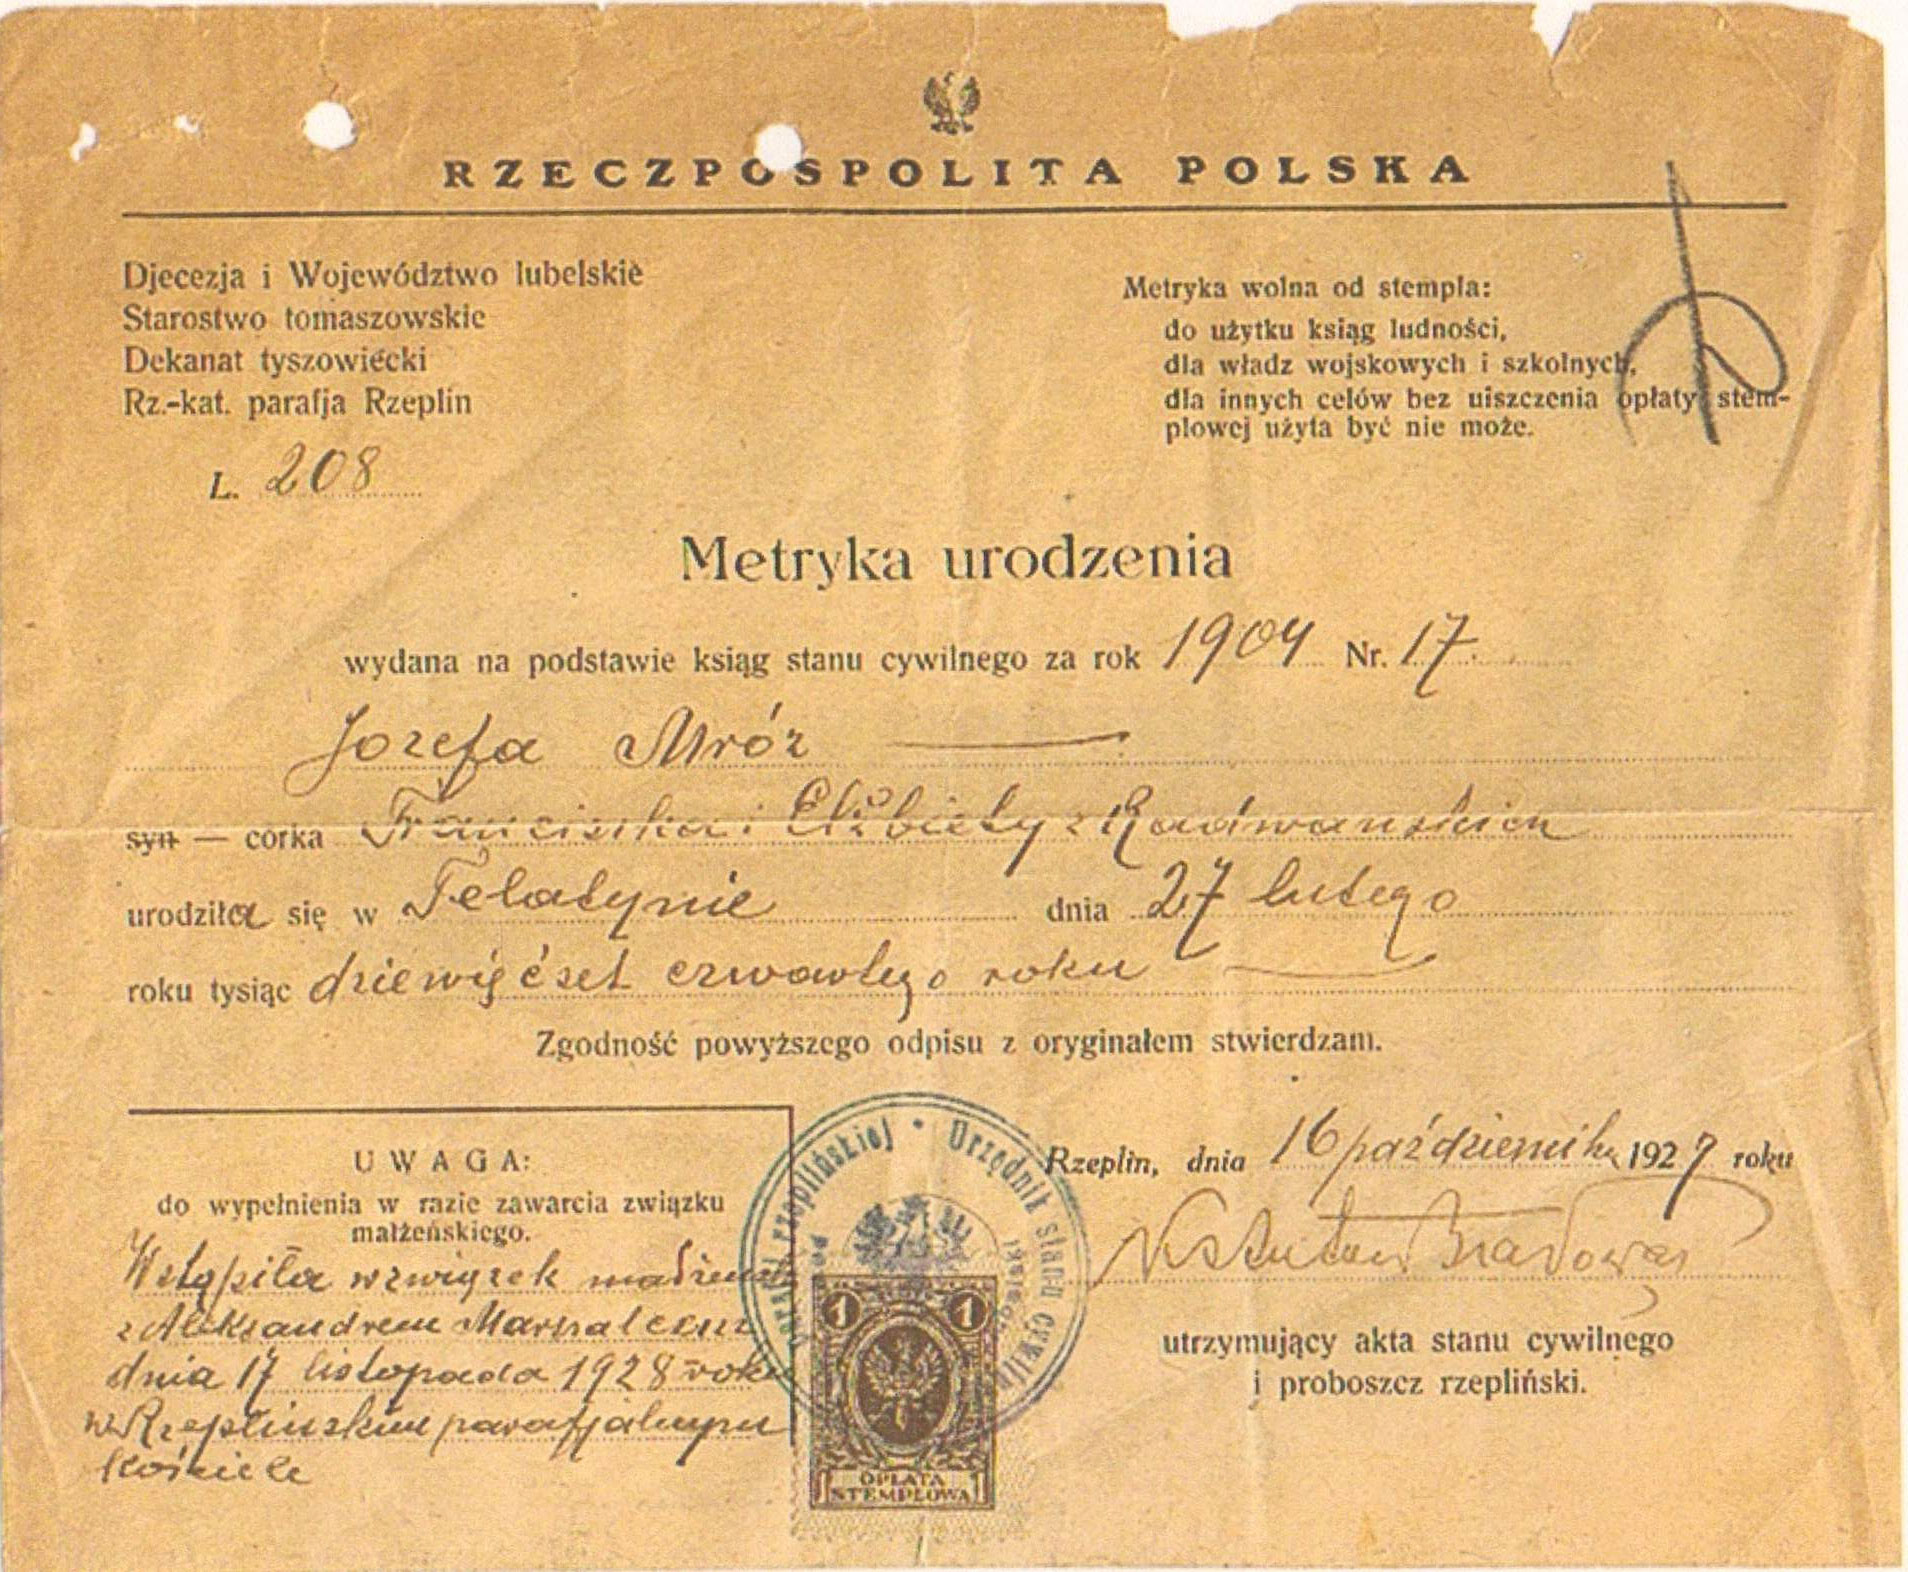 RZECZPOSPOLITA POLSKA
Djecezja i Województwo lubelskie
Starostwo tomaszowskie
Dekanat tyszowiecki
Rz.-kat. parafja Rzeplin
L. 208
Metryka wolna od stempla:
do użytku ksiąg ludności,
dla władz wojskowych i szkolnych,
dla innych celów bez uiszczenia opłaty stem-
plowej użyta być nie może.
Metryka urodzenia
wydana na podstawie ksiąg stanu cywilnego za rok 1904 Nr. 17
Jozefa Mróz
syn — córka Franciszka i Elżbiety z Radwańskich
urodziła się w Telatynie dnia 27 lutego
roku tysiąc dziewięćset czwartego roku
Zgodność powyższego odpisu z oryginałem stwierdzam.
UWAGA:
do wypełnienia w razie zawarcia związku
małżeńskiego.
Wstąpiła w związek
z Aleksandrem
dnia 17 listopada 1928 roku
w Rzeplińskim parafjalnym
kościele
parafji rzeplińskiej • Urzędnik stanu cywiln
1
1
OPŁATA
STEMPLOWA
Rzeplin, dnia 16 października 1927 roku
utrzymujący akta stanu cywilnego
i proboszcz rzepliński.